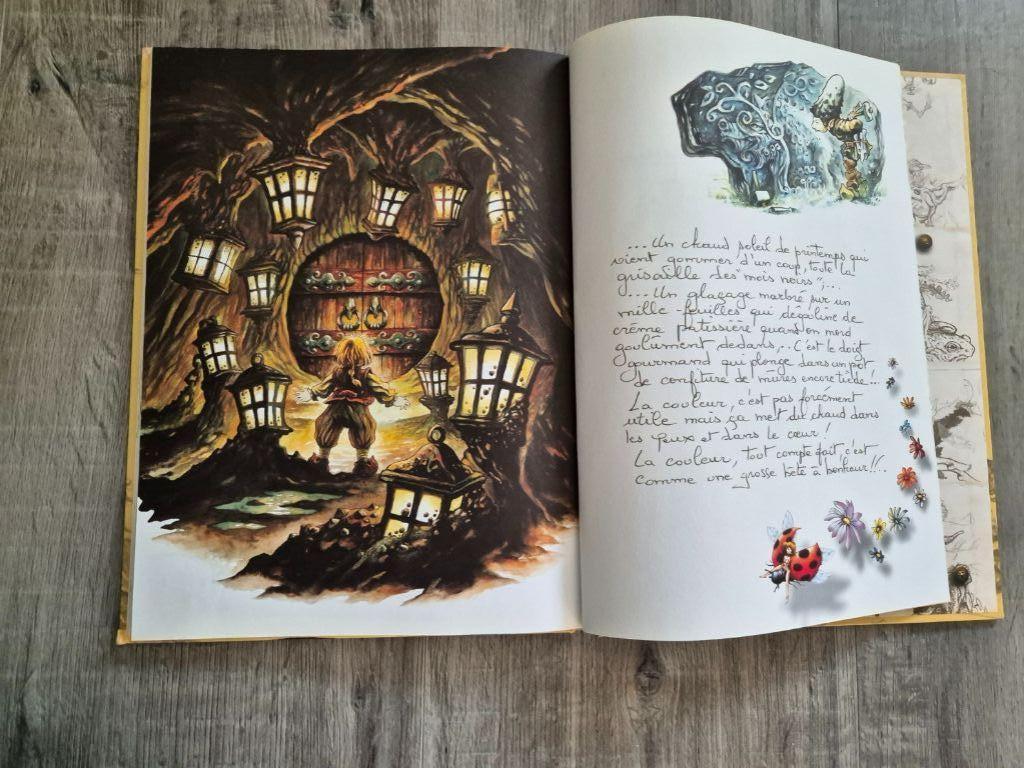 ... Un chaud soleil de printemps qui
vient gommer d'un coup, toute la
grisaille des "mois noirs";...
... Un glaçage marbré sur un
mille-feuilles qui dégouline de
crême patissière quand on mord
goulûment dedans,.. C'est le doigt
gourmand qui plonge dans un pot
de confiture de mûres encore tiède...
La couleur, c'est pas forcément
utile mais ça met du chaud dans
les yeux et dans le cœur!
La couleur, tout compte fait, c'est
comme une grosse bête à bonheur!!..